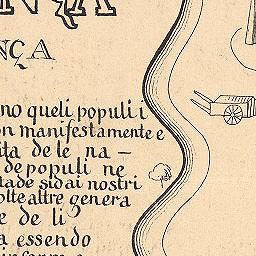 NÇA
no queli populi i
on manifestamente e
ita de le na –
de populi ne
tade sidai nostri
olte altre genera
e de li
a essendo